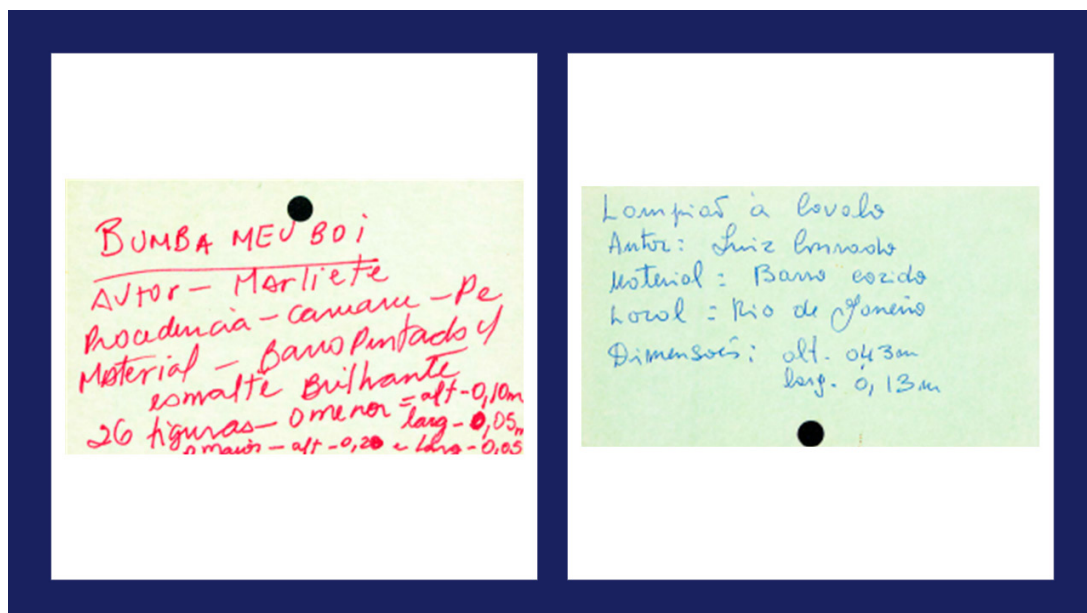 BUMBA MEU BOI
AUTOR - MArliete
Procedencia - caruaru - Pe
Material - Barro Pintado c/
esmalte Brilhante
26 figuras - O menor = alt - 0,10m
larg - 0,05m
o maior - alt - 0,20 e larg - 0,05
Lampiaõ à Cavalo
Autor: Luiz Conrado
Material = Barro cozido
Local = Rio de Janeiro
Dimensoẽs: alt. 043m
larg. 0,13m